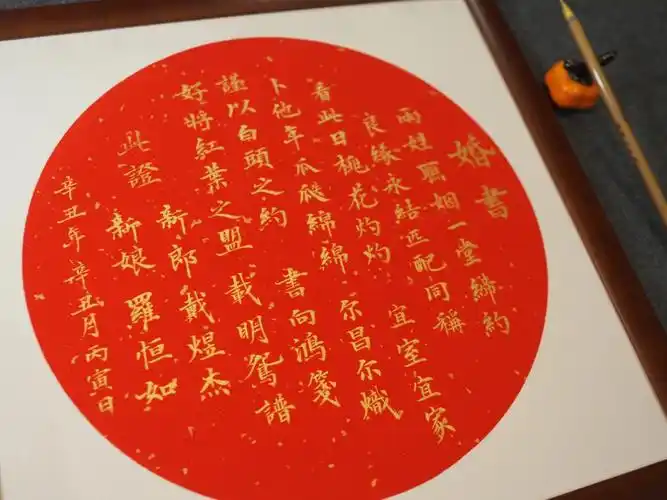 婚書
兩姓聯姻一堂締約
良緣永結匹配同稱
看此日桃花灼灼 宜室宜家
卜他年瓜瓞綿綿 尔昌尔熾
謹以白頭之約 書向鴻箋
好將紅葉之盟 載明鴛譜
此證 新郎 戴煜杰
新娘 羅恒如
辛丑年 辛丑月 丙寅日